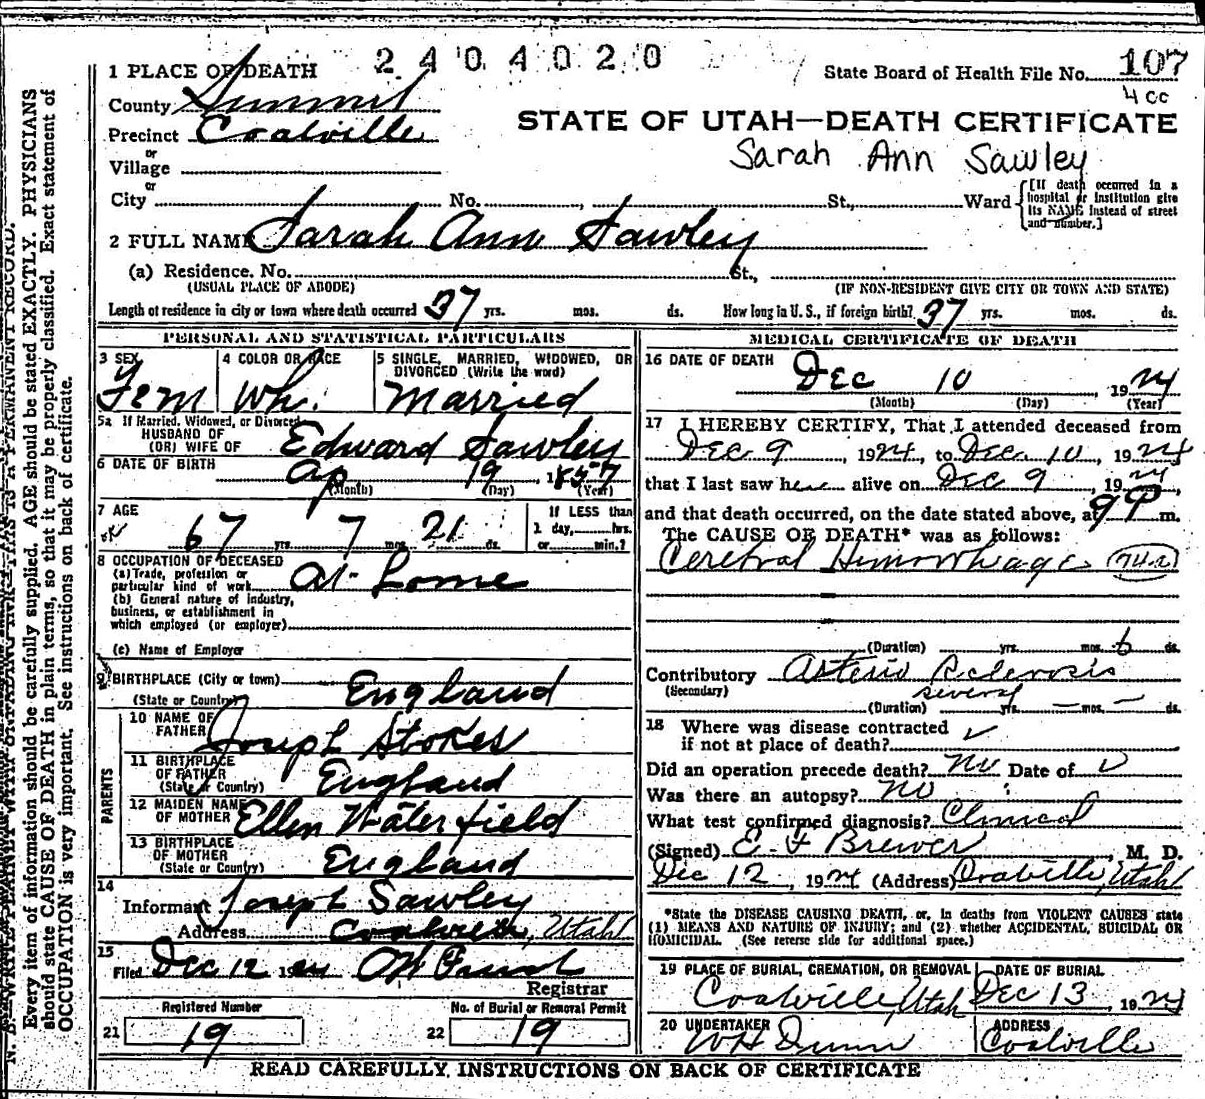 2404020
1 PLACE OF DEATH
State Board of Health File No. 107
County Summit
4 cc
Precinct Coalville
STATE OF UTAH—DEATH CERTIFICATE
or
Sarah Ann Sawley
Village
or
City No. , St., Ward
[If death occurred in a hospital or institution give its NAME instead of street and number.]
2 FULL NAME Sarah Ann Sawley
(a) Residence. No. St.,
(USUAL PLACE OF ABODE) (IF NON-RESIDENT GIVE CITY OR TOWN AND STATE)
Length of residence in city or town where death occurred 37 yrs. mos. ds. How long in U. S., if foreign birth? 37 yrs. mos. ds.
PERSONAL AND STATISTICAL PARTICULARS
3 SEX Fem
4 COLOR OR RACE Wh.
5 SINGLE, MARRIED, WIDOWED, OR DIVORCED (Write the word) Married
5a If Married, Widowed, or Divorced
HUSBAND OF
(OR) WIFE OF Edward Sawley
6 DATE OF BIRTH Ap 19, 1857
(Month) (Day) (Year)
7 AGE 67 yrs. 7 mos. 21 ds.
If LESS than 1 day, hrs. or min.?
8 OCCUPATION OF DECEASED
(a) Trade, profession or particular kind of work At-Home
(b) General nature of industry, business, or establishment in which employed (or employer)
(c) Name of Employer
9 BIRTHPLACE (City or town)
(State or Country) England
PARENTS
10 NAME OF FATHER Joseph Stokes
11 BIRTHPLACE OF FATHER (State or Country) England
12 MAIDEN NAME OF MOTHER Ellen Waterfield
13 BIRTHPLACE OF MOTHER (State or Country) England
14
Informant Joseph Sawley
Address Coalville, Utah
15
Filed Dec 12 1924
Registrar
Registered Number
21 19
No. of Burial or Removal Permit
22 19
MEDICAL CERTIFICATE OF DEATH
16 DATE OF DEATH
Dec 10, 1924
(Month) (Day) (Year)
17 I HEREBY CERTIFY, That I attended deceased from
Dec 9, 1924, to Dec. 10, 1924
that I last saw her alive on Dec 9, 1924,
and that death occurred, on the date stated above, at 9 P m.
The CAUSE OF DEATH* was as follows:
Cerebral Hemorrhage 74a
(Duration) yrs. mos. 6 ds.
Contributory Arterio Sclerosis
(Secondary) several
(Duration) yrs. — mos. — ds.
18 Where was disease contracted
if not at place of death?
Did an operation precede death? No Date of
Was there an autopsy? No
What test confirmed diagnosis? Clinical
(Signed) E. F Brewer, M. D.
Dec 12, 1924 (Address) Coalville, Utah
*State the DISEASE CAUSING DEATH, or, in deaths from VIOLENT CAUSES state
(1) MEANS AND NATURE OF INJURY; and (2) whether ACCIDENTAL, SUICIDAL OR
HOMICIDAL. (See reverse side for additional space.)
19 PLACE OF BURIAL, CREMATION, OR REMOVAL
Coalville, Utah
DATE OF BURIAL
Dec 13, 1924
20 UNDERTAKER
WH Dunn
ADDRESS
Coalville
READ CAREFULLY INSTRUCTIONS ON BACK OF CERTIFICATE
Every item of information should be carefully supplied. AGE should be stated EXACTLY. PHYSICIANS
should state CAUSE OF DEATH in plain terms, so that it may be properly classified. Exact statement of
OCCUPATION is very important. See instructions on back of certificate.